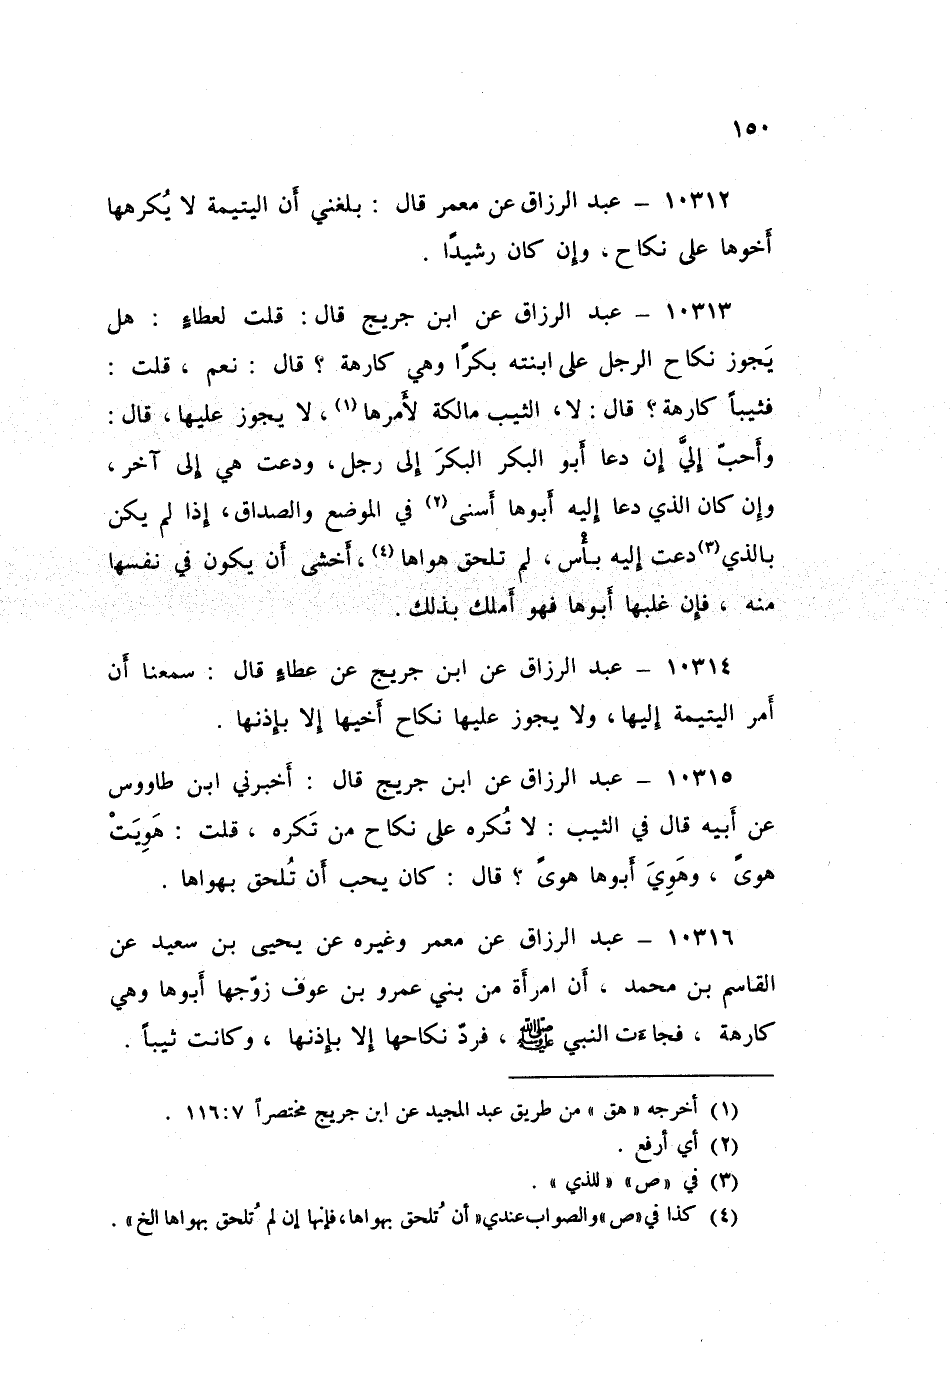 ١٥٠
١٠٣١٢ – عبد الرزاق عن معمر قال : بلغني أَن اليتيمة لا يُكرهها
أَخوها على نكاح ، وإِن كان رشيدًا .
١٠٣١٣ – عبد الرزاق عن ابن جريج قال : قلت لعطاءٍ : هل
يَجوز نكاح الرجل على ابنته بكرًا وهي كارهة ؟ قال : نعم ، قلت :
فثيباً كارهة ؟ قال : لا ، الثيب مالكة لأَمرها (١) ، لا يجوز عليها ، قال :
وأَحبّ إِليَّ إِن دعا أَبو البكر البكرَ إِلى رجل ، ودعت هي إِلى آخر ،
وإِن كان الذي دعا إِليه أَبوها أَسنى (٢) في الموضع والصداق ، إِذا لم يكن
بالذي (٣) دعت إِليه بأْس ، لم تلحق هواها (٤) ، أَخشى أَن يكون في نفسها
منه ، فإِن غلبها أَبوها فهو أَملك بذلك .
١٠٣١٤ – عبد الرزاق عن ابن جريج عن عطاءٍ قال : سمعنا أَن
أَمر اليتيمة إِليها ، ولا يجوز عليها نكاح أَخيها إِلا بإِذنها .
١٠٣١٥ – عبد الرزاق عن ابن جريج قال : أَخبرني ابن طاووس
عن أَبيه قال في الثيب : لا تُكره على نكاح من تَكره ، قلت : هَوِيَتْ
هوىً ، وهَوِيَ أَبوها هوىً ؟ قال : كان يحب أَن تُلحق بهواها .
١٠٣١٦ – عبد الرزاق عن معمر وغيره عن يحيى بن سعيد عن
القاسم بن محمد ، أَن امرأَة من بني عمرو بن عوف زوّجها أَبوها وهي
كارهة ، فجاءَت النبي ﷺ ، فردّ نكاحها إِلا بإِذنها ، وكانت ثيباً .
(١) أخرجه « هق » من طريق عبد المجيد عن ابن جريج مختصراً ٧ : ١١٦ .
(٢) أي أرفع .
(٣) في «ص» « للذي » .
(٤) كذا في «ص» والصواب عندي « أن تُلحق بهواها ، فإنها إن لم تُلحق بهواها الخ » .